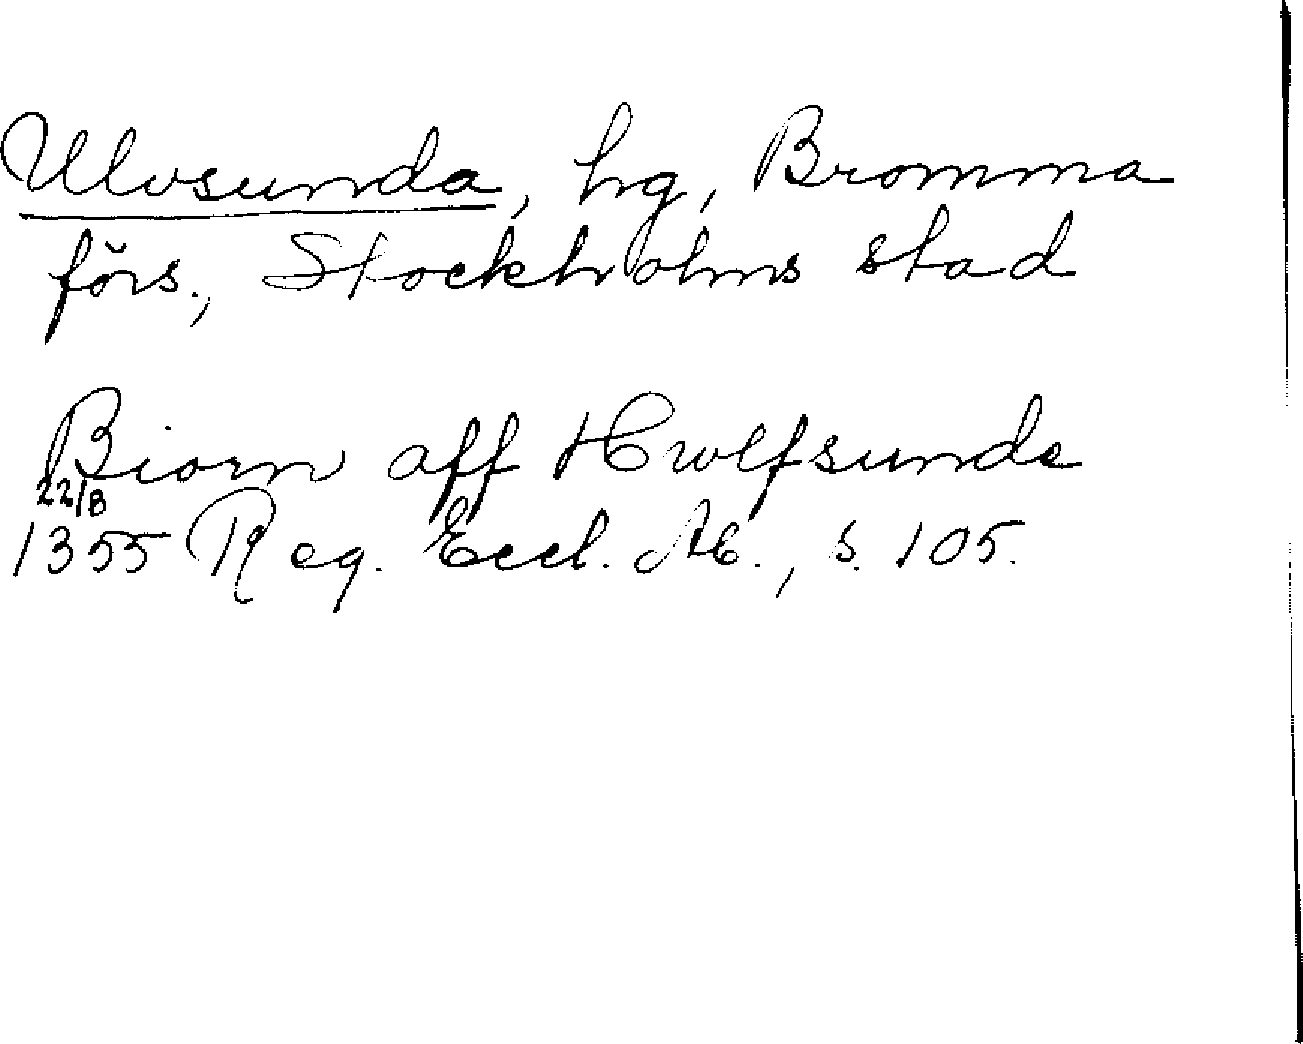 Ulvsunda, hg, Bromma
förs., Stockholms stad
Biorn aff Hwlfsunde
22/8
1355 Reg. Eccl. AE., s. 105.